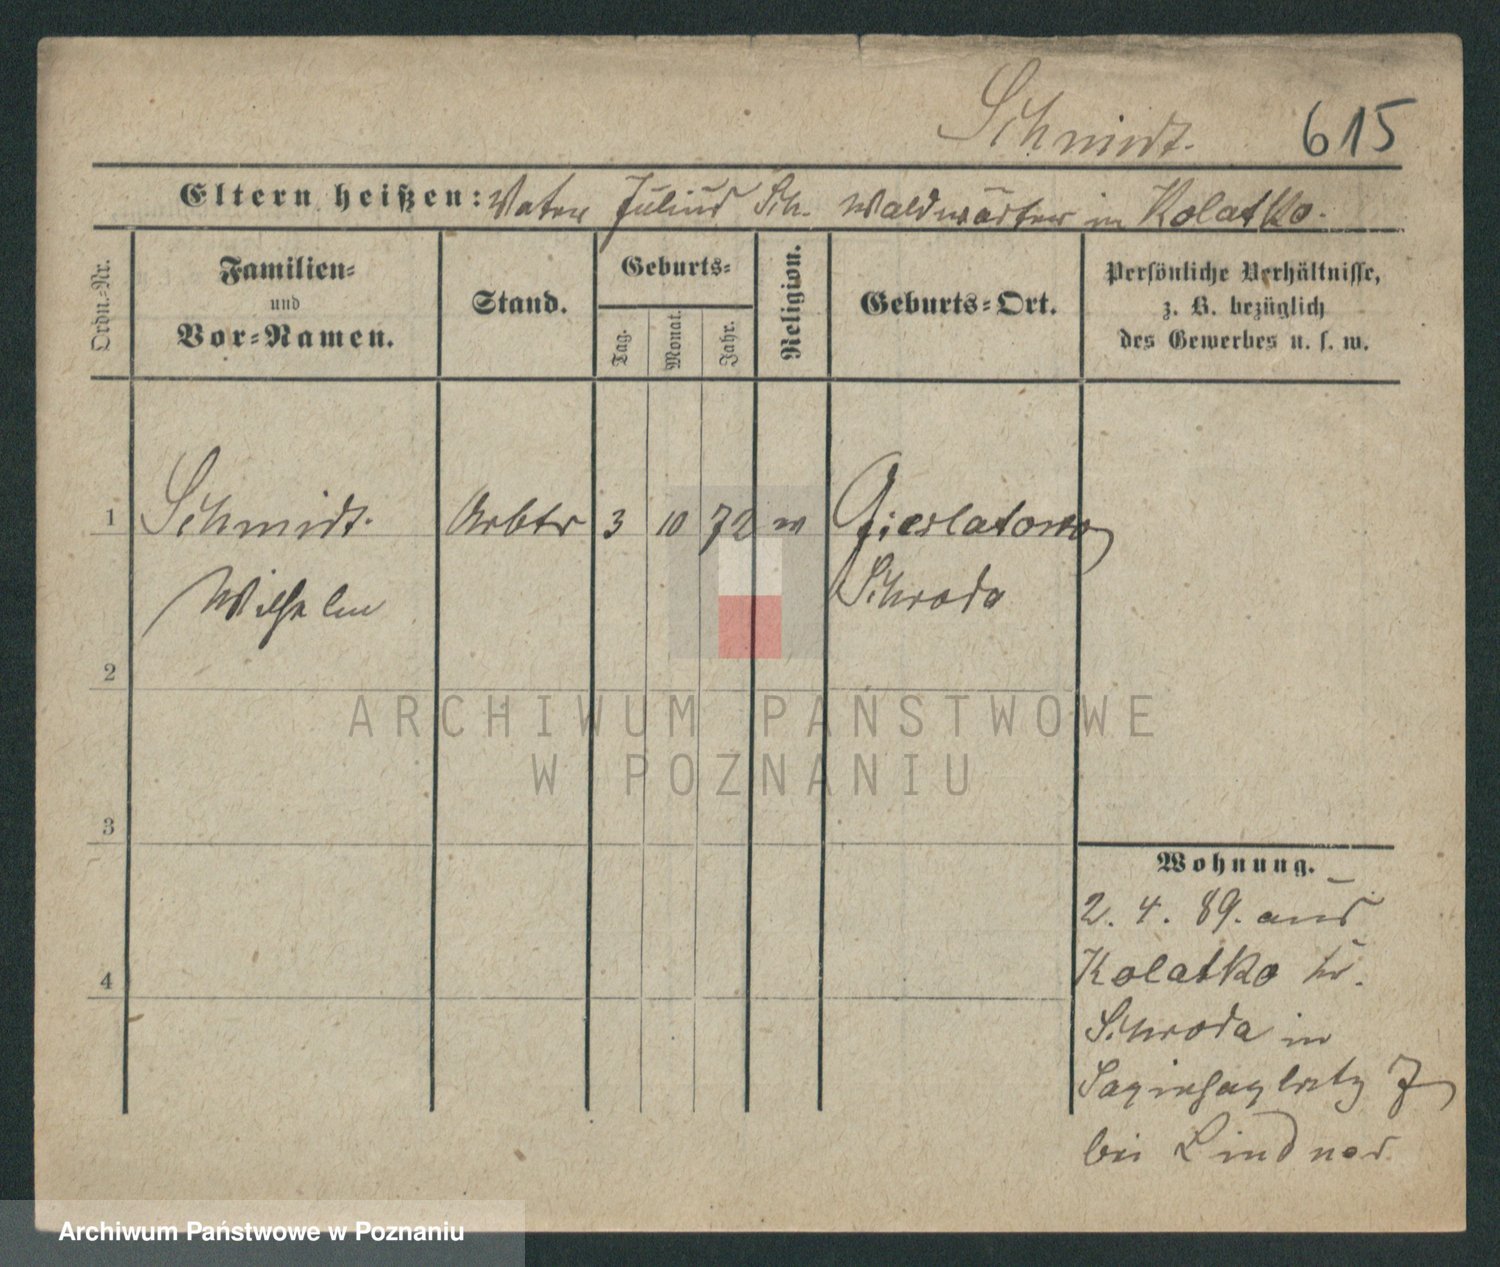 Schmidt. 615
Eltern heißen: Vater Julius Sch. Waldwärter in Kolatko.
Ordn.=Nr.
Familien=
und
Vor=Namen.
Stand.
Geburts=
Tag.
Monat.
Jahr.
Religion.
Geburts=Ort.
Persönliche Verhältnisse,
z. B. bezüglich
des Gewerbes u. s. w.
1 Schmidt. Arbtr 3 10 72 Gieslatowo
Wilhelm Schroda
2
3
4
Wohnung.
2. 4. 89. aus
Kolatko Kr.
Schroda in
Sapiehaplatz 7
bei Lindner
ARCHIWUM PAŃSTWOWE
W POZNANIU
Archiwum Państwowe w Poznaniu